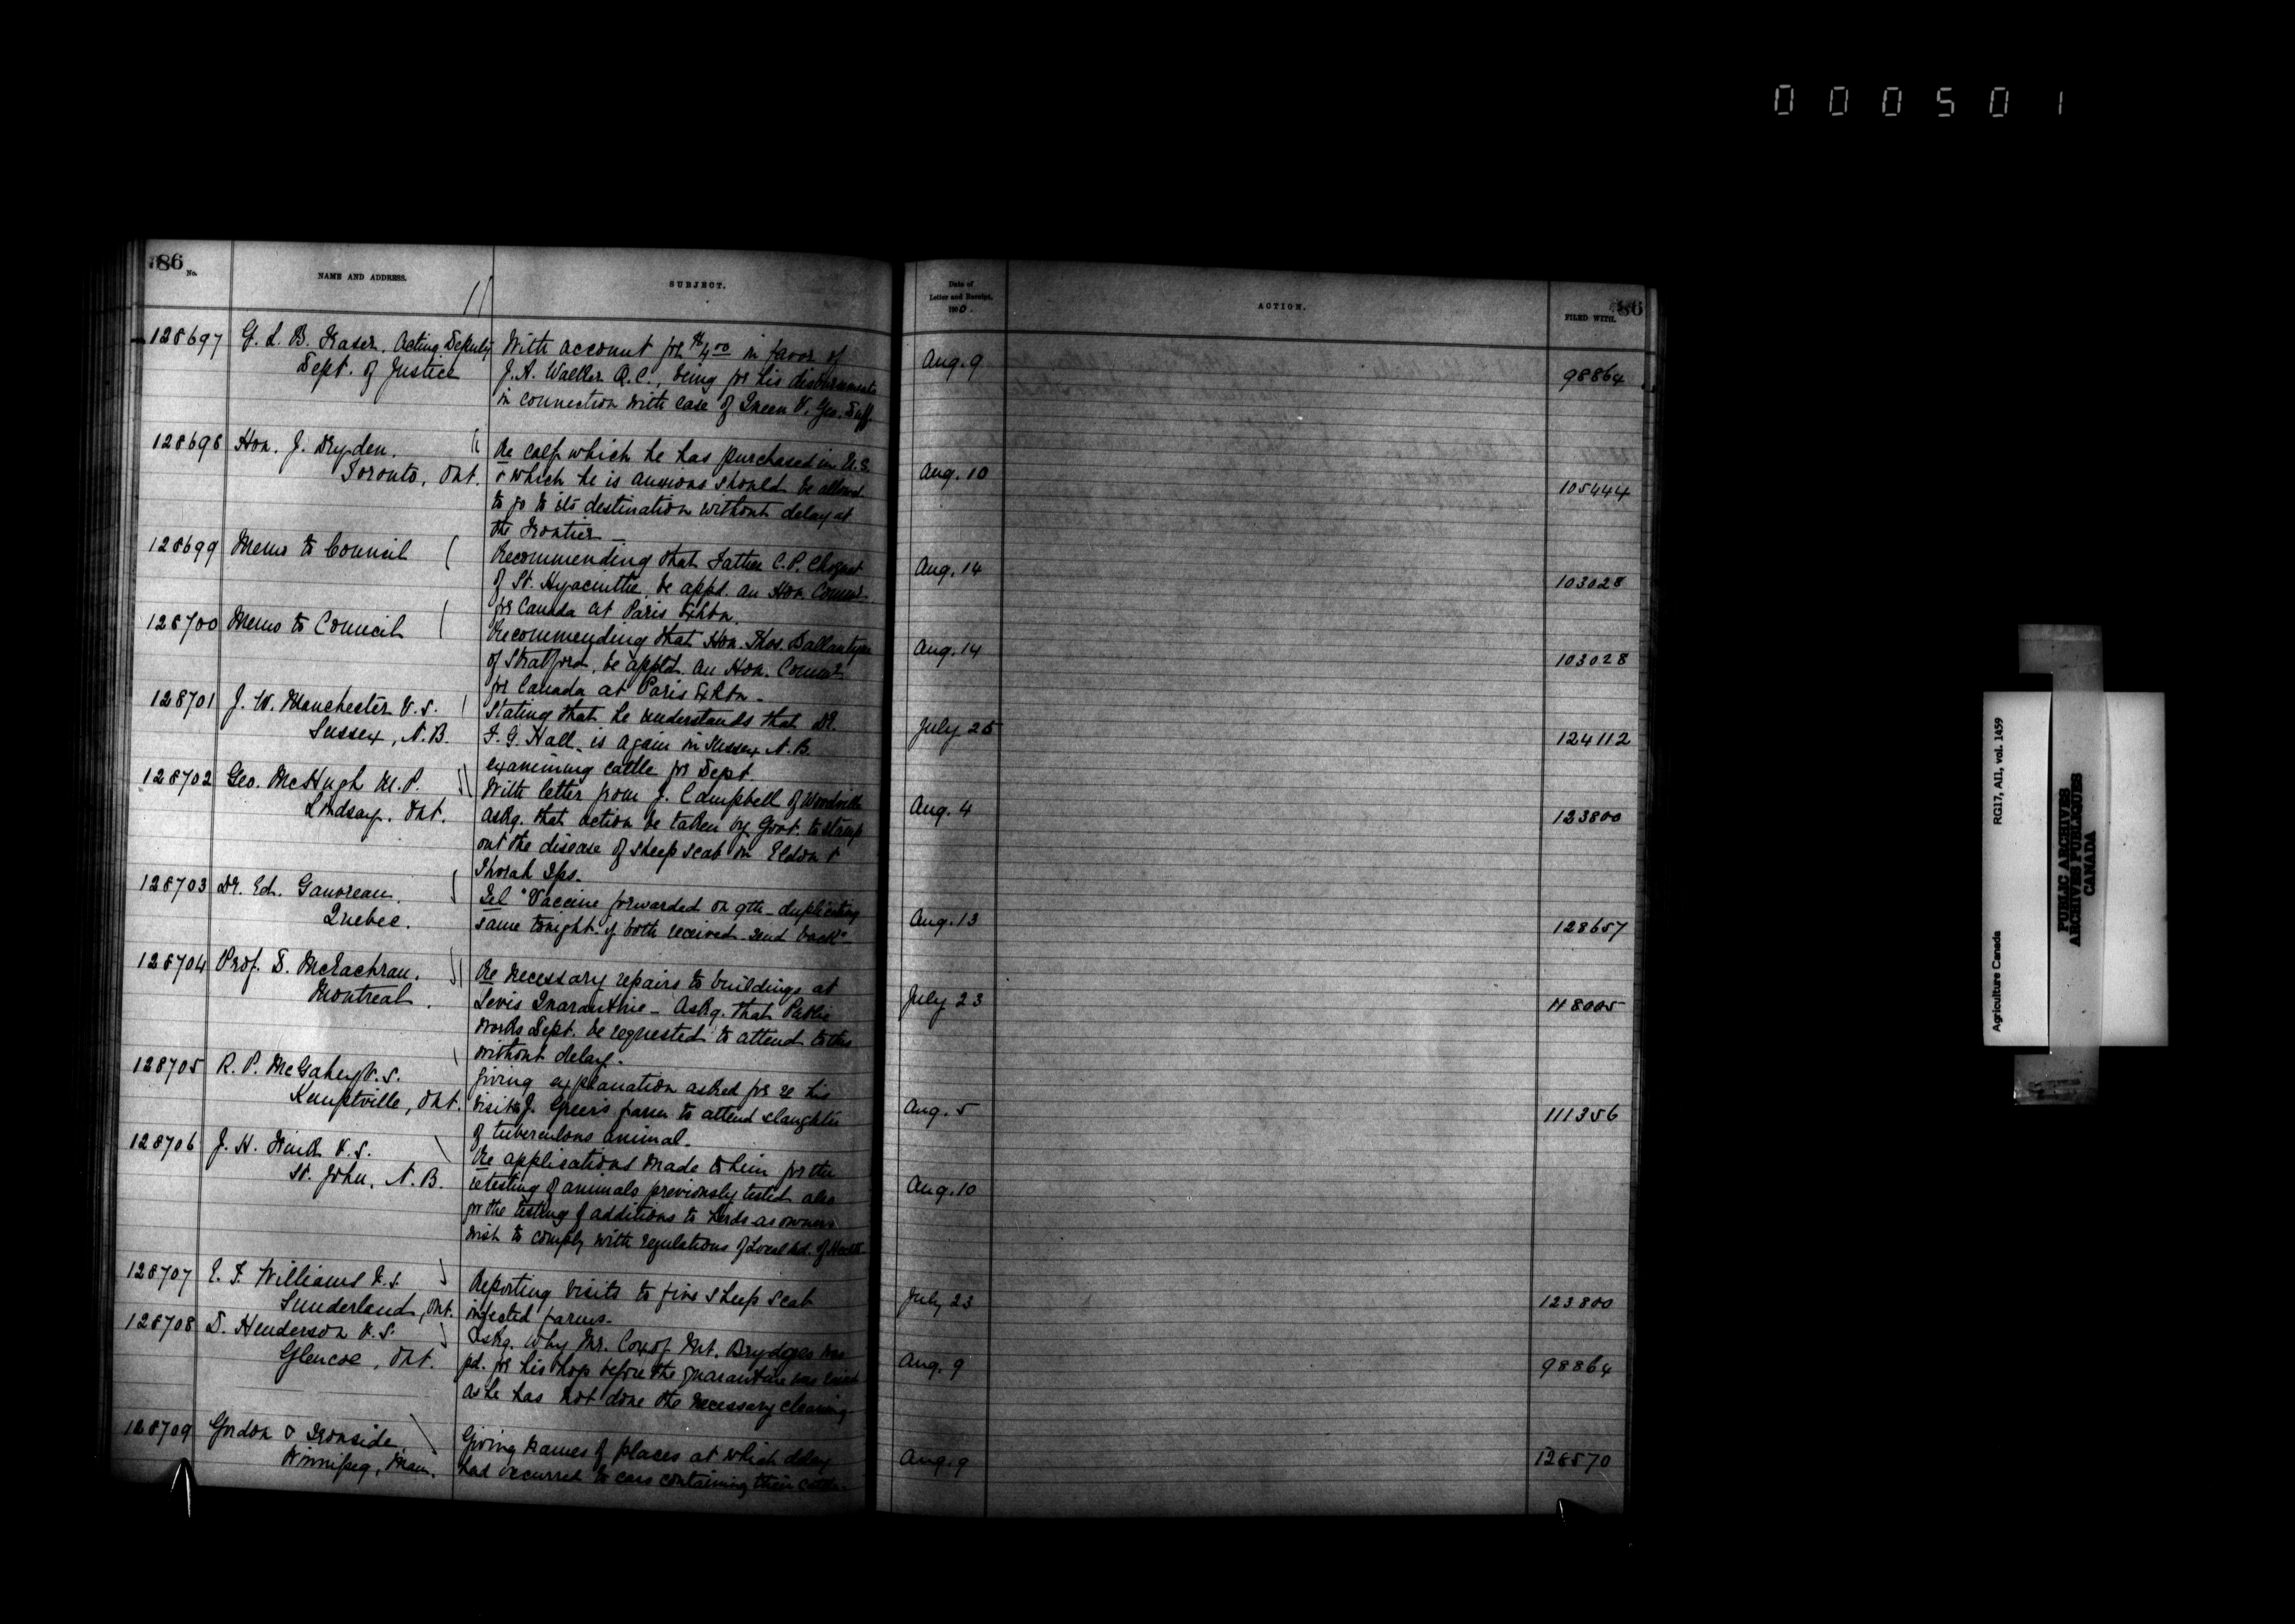 000501
86
No.
NAME AND ADDRESS.
SUBJECT.
Date of
Letter and Receipt.
1900.
ACTION.
FILED WITH.
86
128697 G. L. B. Fraser, Acting Deputy
Dept. of Justice
With account for $4.00 in favor of
J. A. Walker Q.C., being for his disbursements
in connection with case of Queen V. Geo. Duff.
Aug. 9
98864
128698 Hon. J. Dryden.
Toronto, Ont.
Re calf which he has purchased in U.S.
& which he is anxious should be allowed
to go to its destination without delay at
the Frontier
Aug. 10
105444
128699 Memo to Council
Recommending that Father C. P. Choquet
of St. Hyacinthe, be appd. an Hon. Commr.
for Canada at Paris Exhbn.
Aug. 14
103028
128700 Memo to Council
Recommending that Hon. Thos. Ballantyne
of Stratford, be apptd. an Hon. Commr.
for Canada at Paris Exhbn -
Aug. 14
103028
128701 J. W. Manchester V.S.
Sussex, N.B.
Stating that he understands that Dr.
F. G. Hall, is again in Sussex N.B.
examining cattle for Dept.
July 25
124112
128702 Geo. McHugh M.P.
Lindsay, Ont.
With letter from J. Campbell of Woodville
askg. that action be taken by Govt. to stamp
out the disease of sheep scab in Eldon &
Thorah Tps.
Aug. 4
123800
128703 Dr. Ed. Gauvreau.
Quebec.
Tel "Vaccine forwarded on 9th - duplicating
same tonight. if both received send back" -
Aug. 13
128657
128704 Prof. D. McEachran.
Montreal.
Re necessary repairs to buildings at
Levis Quarantine - Askg. that Public
Works Dept. be requested to attend to this
without delay.
July 23
118005
128705 R. P. McGahey V.S.
Kemptville, Ont.
Giving explanation asked for re his
visit to J. Greer's farm to attend slaughter
of tuberculous animal.
Aug. 5
111356
128706 J. H. Frink V.S.
St. John, N.B.
Re applications made to him for the
retesting of animals previously tested also
for the testing of additions to herds as owners
wish to comply with regulations of Local Bd. of Health
Aug. 10
128707 E. F. Williams V.S.
Sunderland, Ont.
Reporting visits to five sheep scab
infected farms.
July 23
123800
128708 D. Henderson V.S.
Glencoe, Ont.
Askg. why Mr. Cox of Mt. Brydges was
pd. for his hogs before the quarantine was raised
as he has not done the necessary cleaning
Aug. 9
98864
128709 Gordon & Ironside,
Winnipeg, Man.
Giving names of places at which delay
had occurred to cars containing their cattle.
Aug. 9
128570
Agriculture Canada
RG17, AII, vol. 1459
PUBLIC ARCHIVES
ARCHIVES PUBLIQUES
CANADA